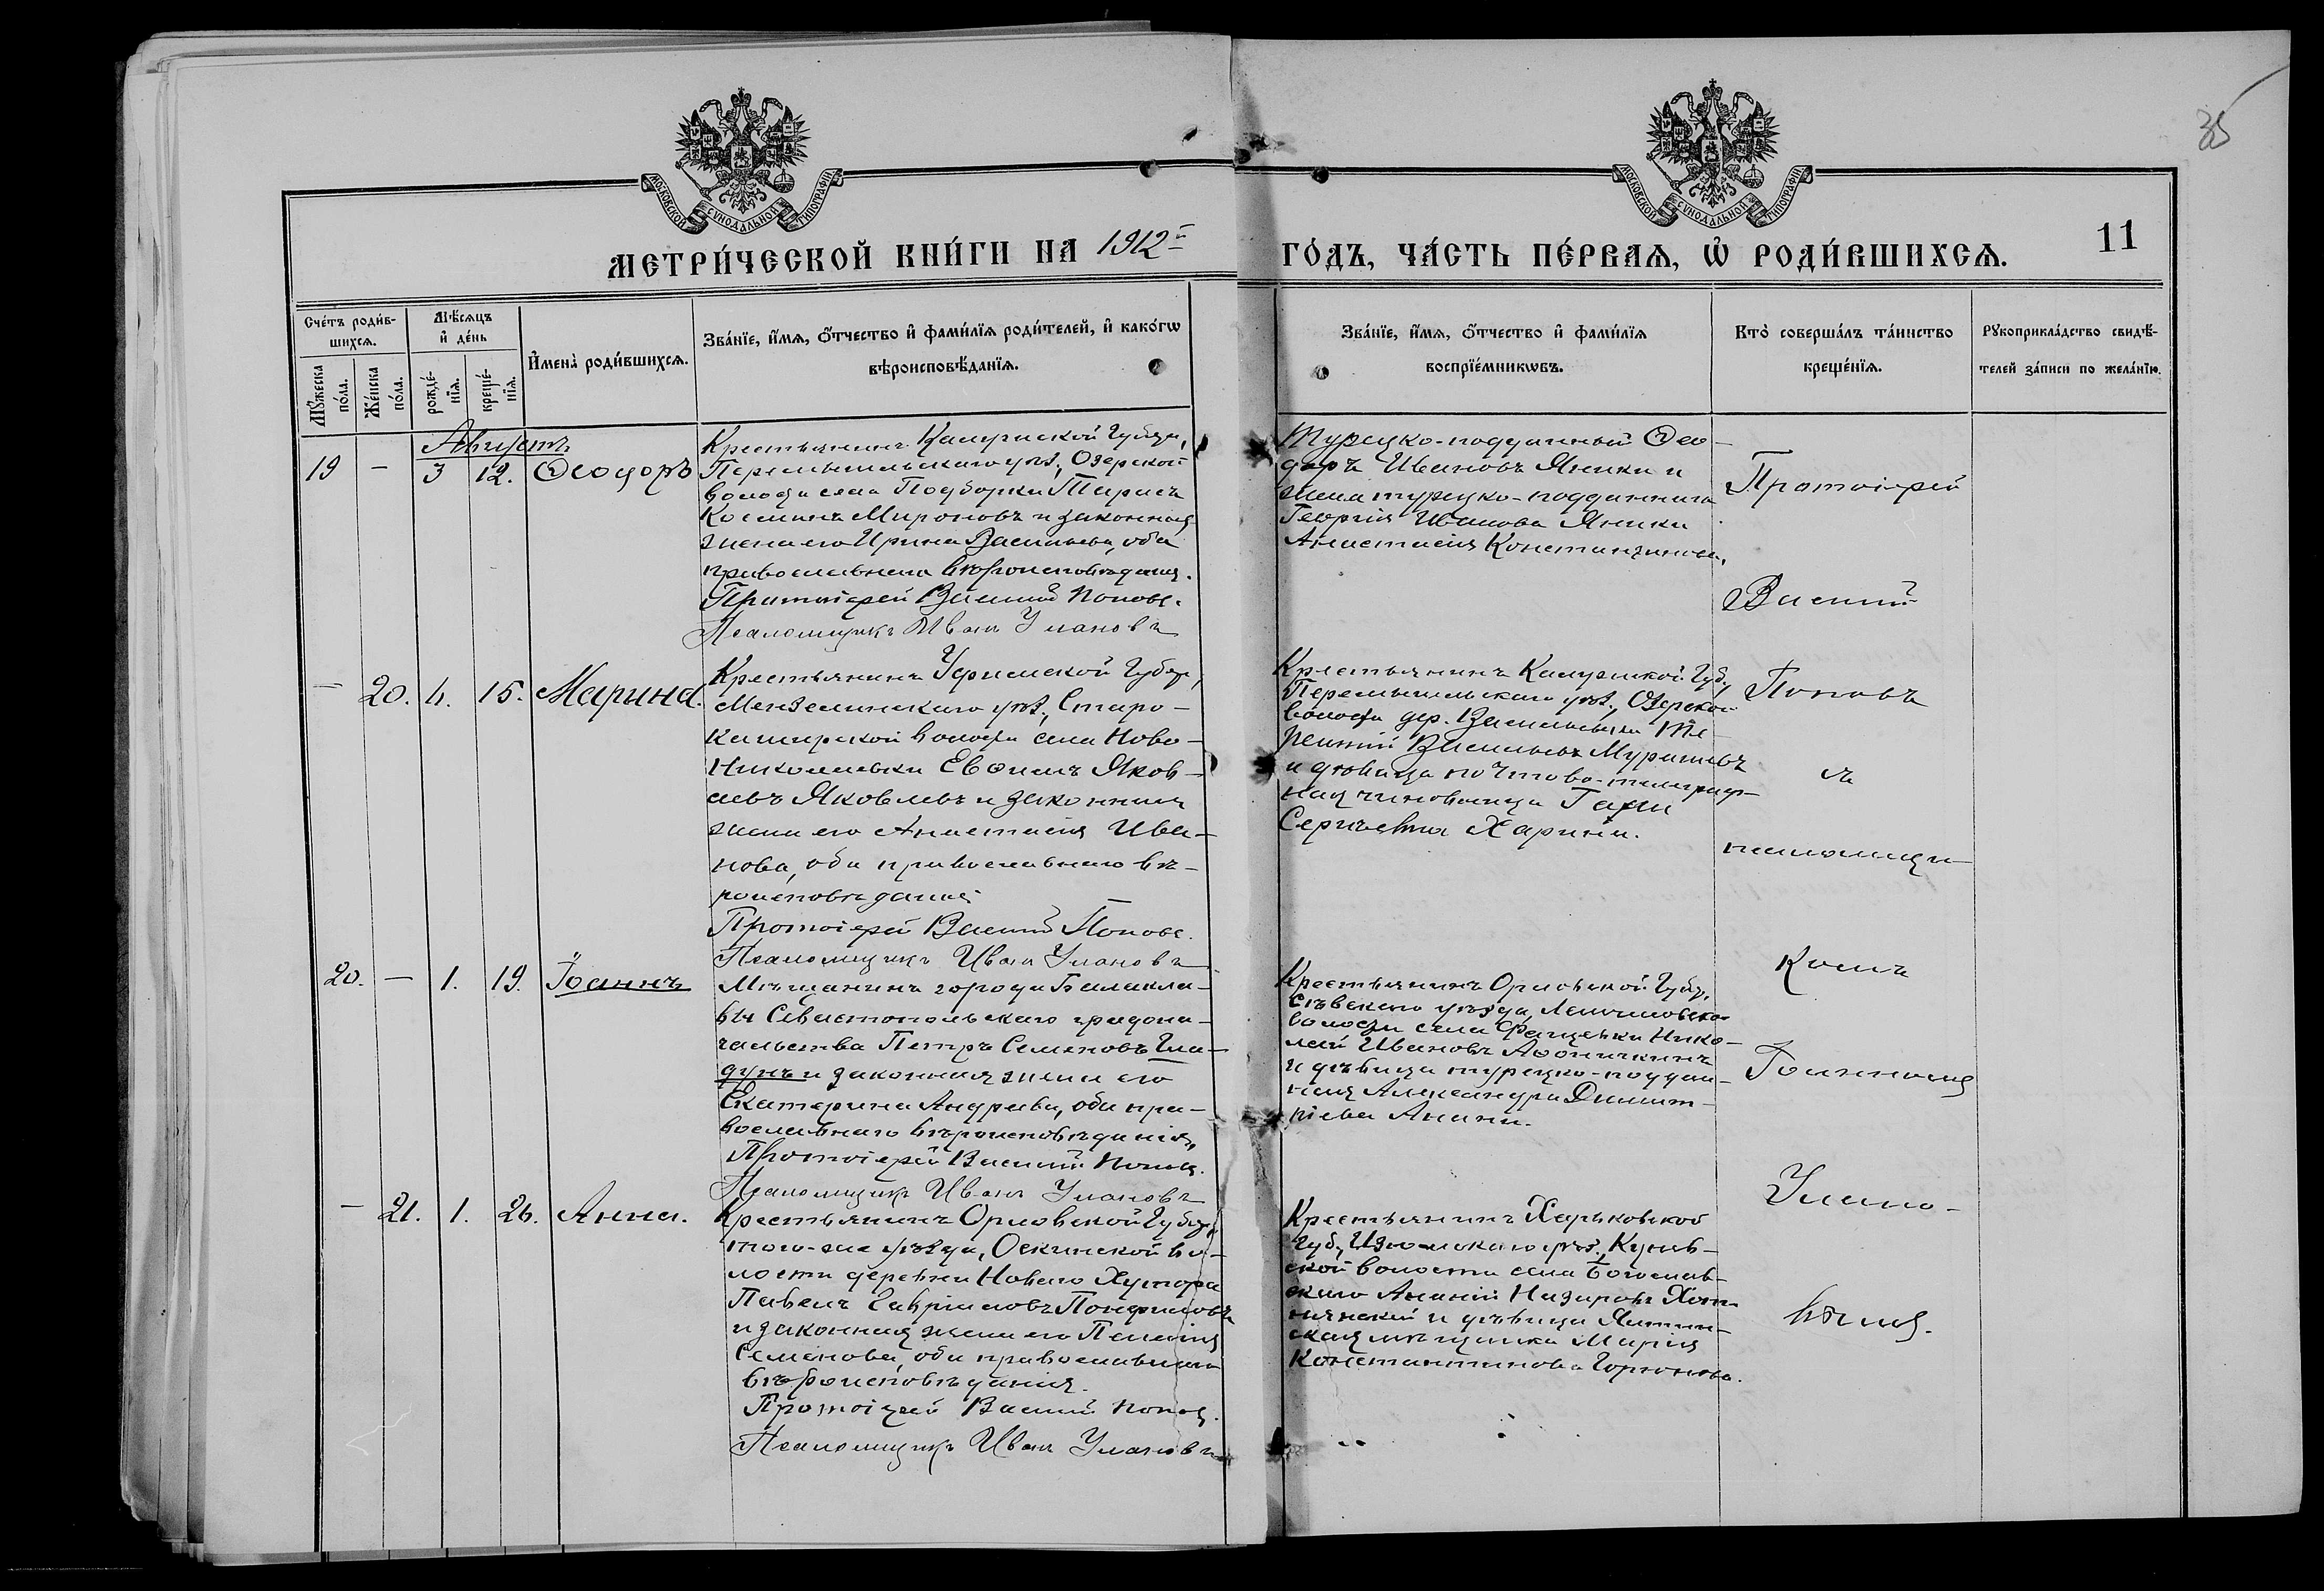 МОСКОВСКОЙ СѴНОДАЛЬНОЙ ТИПОГРАФІИ
МОСКОВСКОЙ СѴНОДАЛЬНОЙ ТИПОГРАФІИ
35
МЕТРИ́ЧЕСКОЙ КНИ́ГИ НА 1912й
ГО́ДЪ, ЧА́СТЬ ПЕ́РВАѦ, Ѡ҆ РОДИ́ВШИХСѦ.
11
Сче́тъ роди́в-
шихсѧ.
Мѣ́сѧцъ
и҆ де́нь
Мꙋ́жеска
по́ла.
Же́нска
по́ла.
рожде́-
нїѧ.
креще́-
нїѧ.
И҆мена̀ роди́вшихсѧ.
Зва́нїе, и҆́мѧ, ѻ҆́тчество и҆ фами́лїѧ роди́телей, и҆ како́гѡ
вѣроисповѣ́данїѧ.
Зва́нїе, и҆́мѧ, ѻ҆́тчество и҆ фами́лїѧ
воспрїе́мникѡвъ.
Кто̀ соверша́лъ та́инство
креще́нїѧ.
Рꙋкоприкла́дство свидѣ́-
телей за́писи по жела́нїю.
Августъ
19 — 3 12. Ѳеодоръ
Крестьянинъ Калужской Губер.,
Перемышльскаго уѣз., Озерской
волости села Подборки Тарасъ
Косминъ Мироновъ и законная
жена его Ирина Васильева, оба
православнаго вѣроисповѣданія.
Протоіерей Василій Поповъ.
Псаломщикъ Иванъ Улановъ
Турецко-подданный Ѳео-
доръ Ивановъ Яники и
жена турецко-подданнаго
Георгія Иванова Яники
Анастасія Константинова.
— 20. 4. 15. Марина.
Крестьянинъ Уфимской Губер.,
Мензелинскаго уѣз., Старо-
каширской волости села Ново-
Николаевки Евѳимъ Яков-
левъ Яковлевъ и законная
жена его Анастасія Ива-
нова, оба православнаго вѣ-
роисповѣданія
Протоіерей Василій Поповъ.
Псаломщикъ Иванъ Улановъ
Крестьянинъ Калужской Губ.,
Перемышльскаго уѣз., Озерской
волости дер. Те-
рентій Васильевъ
и дѣвица почтово-телеграф-
наго чиновника
Сергѣевна Харина.
20. — 1. 19. Іоаннъ
Мѣщанинъ города Балакла-
вы Севастопольскаго градона-
чальства Петръ Семеновъ Гла-
дунъ и законная жена его
Екатерина Андреева, оба пра-
вославнаго вѣроисповѣданія.
Протоіерей Василій Поповъ.
Псаломщикъ Иванъ Улановъ
Крестьянинъ Орловской Губер.
Сѣвскаго уѣзда,
волости села Нико-
лай Ивановъ Аѳоничкинъ
и дѣвица турецко-поддан-
ная Александра Димит-
ріева
— 21. 1. 26. Анна.
Крестьянинъ Орловской Губер.,
того-же уѣзда, во-
лости деревни Новаго Хутора
Павелъ Гавріиловъ
и законная жена его Пелагія
Семенова, оба православнаго
вѣроисповѣданія.
Протоіерей Василій Поповъ.
Псаломщикъ Иванъ Улановъ
Крестьянинъ Харьковской
Губ., Изюмскаго уѣз., Куньев-
ской волости села Богослав-
скаго Ананій
и дѣвица Ялтин-
ская мѣщанка Марія
Константинова
Протоіерей
Василій
Поповъ
съ
псаломщи-
комъ
Іоанномъ
Улано-
вымъ.